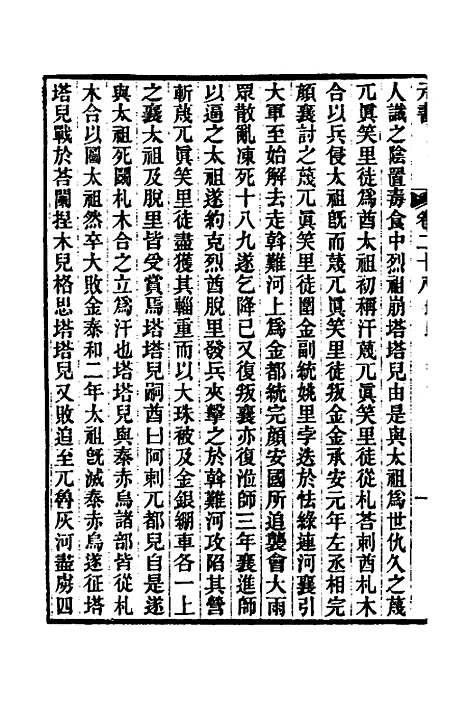 元書
卷二十八
一
人識之陰置毒食中烈祖崩塔塔兒由是與太祖爲世仇久之蔑
兀眞笑里徒爲酋太祖初稱汗蔑兀眞笑里徒從札荅剌酋札木
合以兵侵太祖旣而蔑兀眞笑里徒叛金金承安元年左丞相完
顏襄討之蔑兀眞笑里徒圍金副統姚里孛迭於怯綠連河襄引
大軍至始解去走斡難河上爲金都統完顏安國所追襲會大雨
眾散亂凍死十八九遂乞降已又復叛襄亦復涖師三年襄進師
以逼之太祖遂約克烈酋脫里發兵夾擊之於斡難河攻陷其營
斬蔑兀眞笑里徒盡獲其輜重而以大珠被及金銀綳車各一上
之襄太祖及脫里皆受賞焉塔塔兒嗣酋曰阿剌兀都兒自是遂
與太祖死鬭札木合之立爲汗也塔塔兒與泰赤烏諸部皆從札
木合以圖太祖然卒大敗金泰和二年太祖旣滅泰赤烏遂征塔
塔兒戰於荅闌捏木兒格思塔塔兒又敗追至兀魯灰河盡虜四